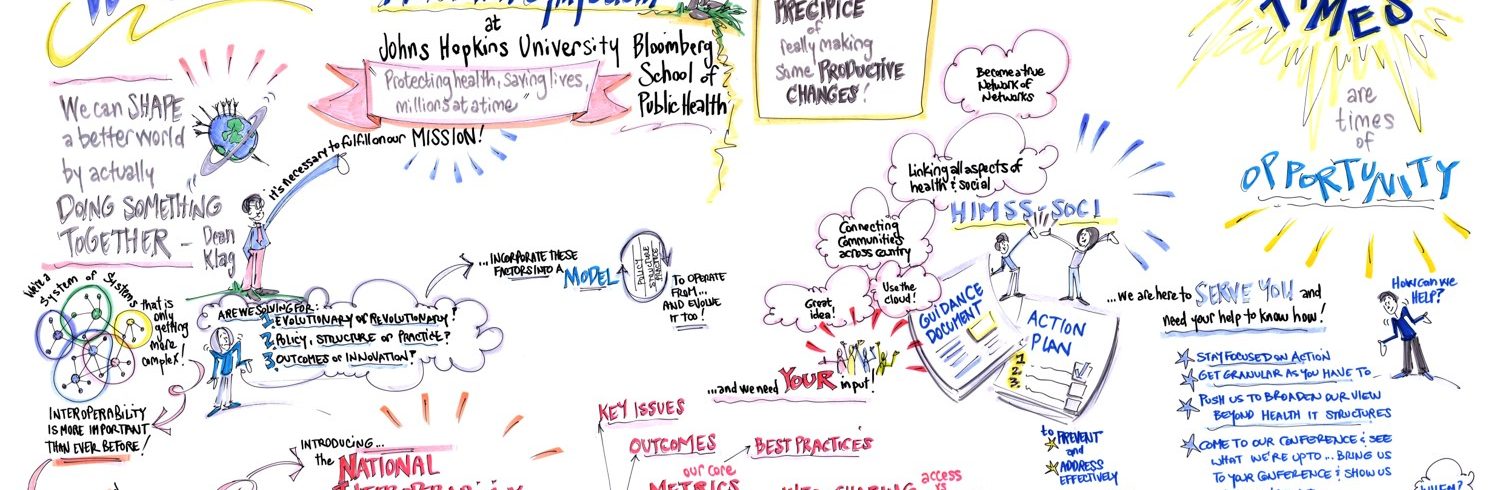 at
Johns Hopkins University Bloomberg
School of
Public Health
"Protecting health, saving lives,
millions at a time"
it's necessary to fulfill on our MISSION!
We can SHAPE
a better world
by actually
DOING SOMETHING
TOGETHER -
Dean
Klag
PRECIPICE
of
really making
some PRODUCTIVE
CHANGES!
Become a true
Network of
Networks
Linking all aspects of
health & social
HIMSS-SOCI
Connecting
Communities
across country
Great
idea!
Use the
cloud!
TIMES
are
times
of
OPPORTUNITY
We're a
System of Systems
that is
only
getting
more
complex!
INTEROPERABILITY
IS MORE IMPORTANT
THAN EVER BEFORE!
ARE WE SOLVING FOR:
1. EVOLUTIONARY or REVOLUTIONARY?
2. POLICY, STRUCTURE or PRACTICE?
3. OUTCOMES or INNOVATION?
...INCORPORATE THESE
FACTORS INTO A MODEL
POLICY
STRUCTURE
PRACTICE
TO OPERATE
FROM...
AND EVOLVE
IT TOO!
...and we need YOUR input!
GUIDANCE
DOCUMENT
ACTION
PLAN
1.
2.
3.
to PREVENT
and
ADDRESS
EFFECTIVELY
...we are here to SERVE YOU and
need your help to know how!
How can we
HELP?
STAY FOCUSED ON ACTION
GET GRANULAR AS YOU HAVE TO
PUSH US TO BROADEN OUR VIEW
BEYOND HEALTH IT STRUCTURES
COME TO OUR CONFERENCE & SEE
WHAT WE'RE UP TO... BRING US
TO YOUR CONFERENCE & SHOW US
INTRODUCING...
the NATIONAL
KEY ISSUES
OUTCOMES
BEST PRACTICES
our core
METRICS
access
vs